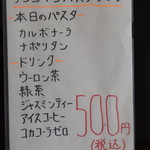 本日のパスタ
カルボナーラ
ナポリタン
ドリンク
ウーロン茶
緑茶
ジャスミンティー
アイスコーヒー
コカコーラゼロ
500円
(税込)